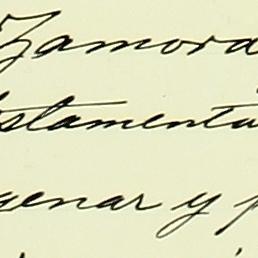 Zamora
stamenta
genar y p